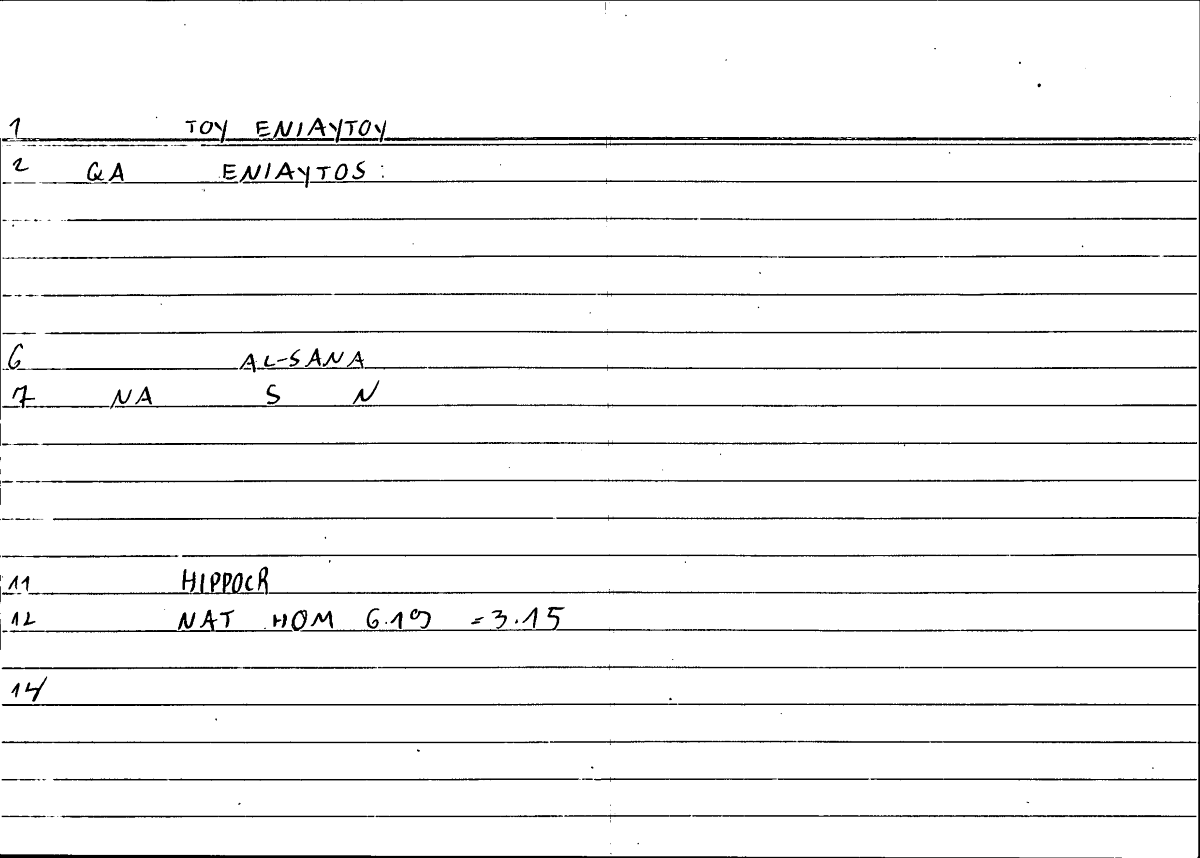 1 TOY ENIAYTOY
2 QA ENIAYTOS:
6 AL-SANA
7 NA S N
11 HIPPOCR
12 NAT HOM 6.19 =3.15
14